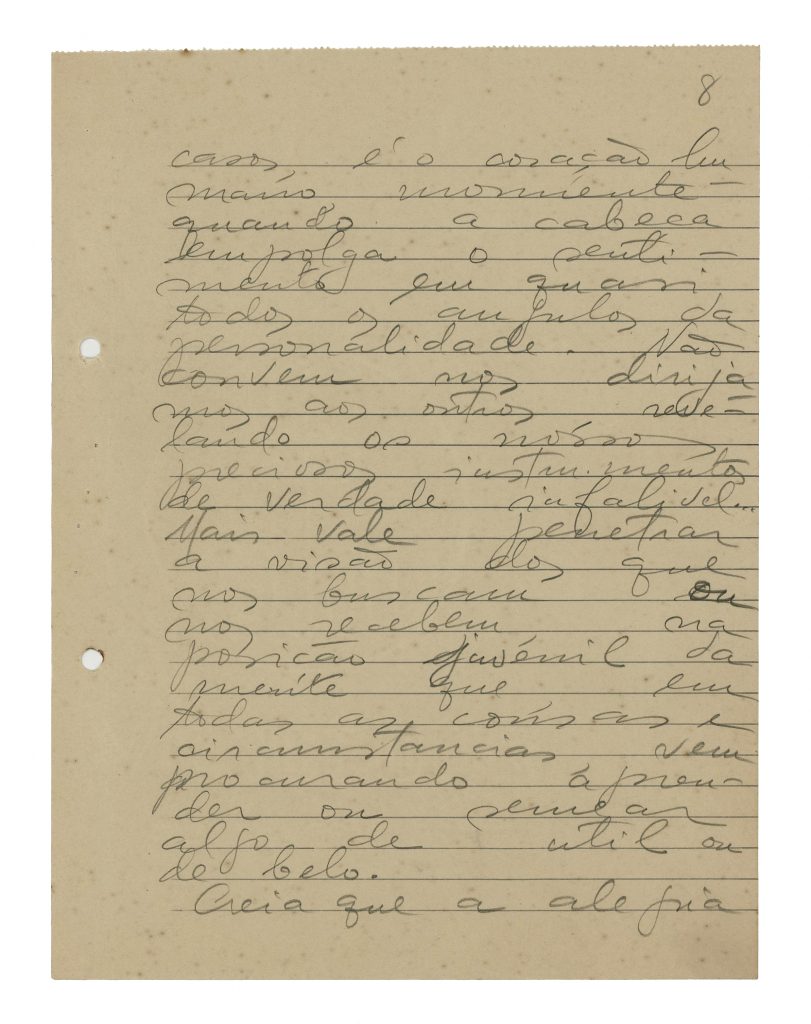 8
casos é o coração hu
mano, mormente
quando a cabeca
empolga o senti-
mento em quasi
todos os angulos da
personalidade. Não
convem nos dirija
mos aos outros reve-
lando os nóssos
preciosos instrumentos
de verdade infalivel...
Mais vale penetrar
a visão dos que
nos buscam ou
nos recebem na
posicão juvenil da
mente que em
todas as coisas e
circumstancias vem
procurando apren-
der ou semear
algo de util ou
de belo.
Creia que a alegria